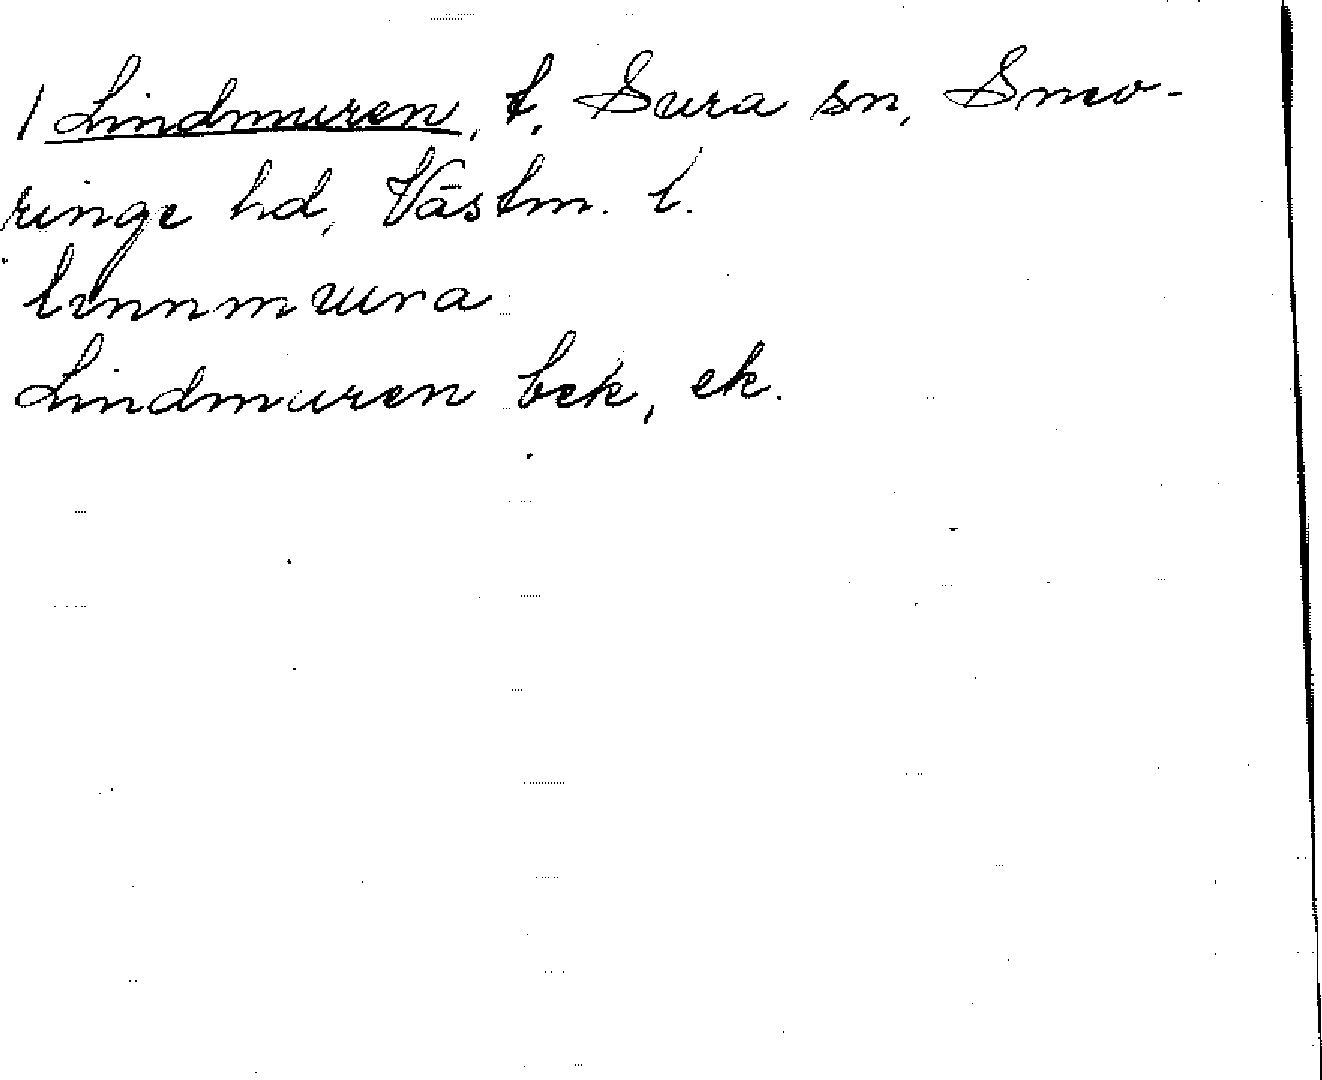 / Lindmuren, t, Sura sn, Snev-
ringe hd, Västm. l.
linnmura
Lindmuren bek, ek.